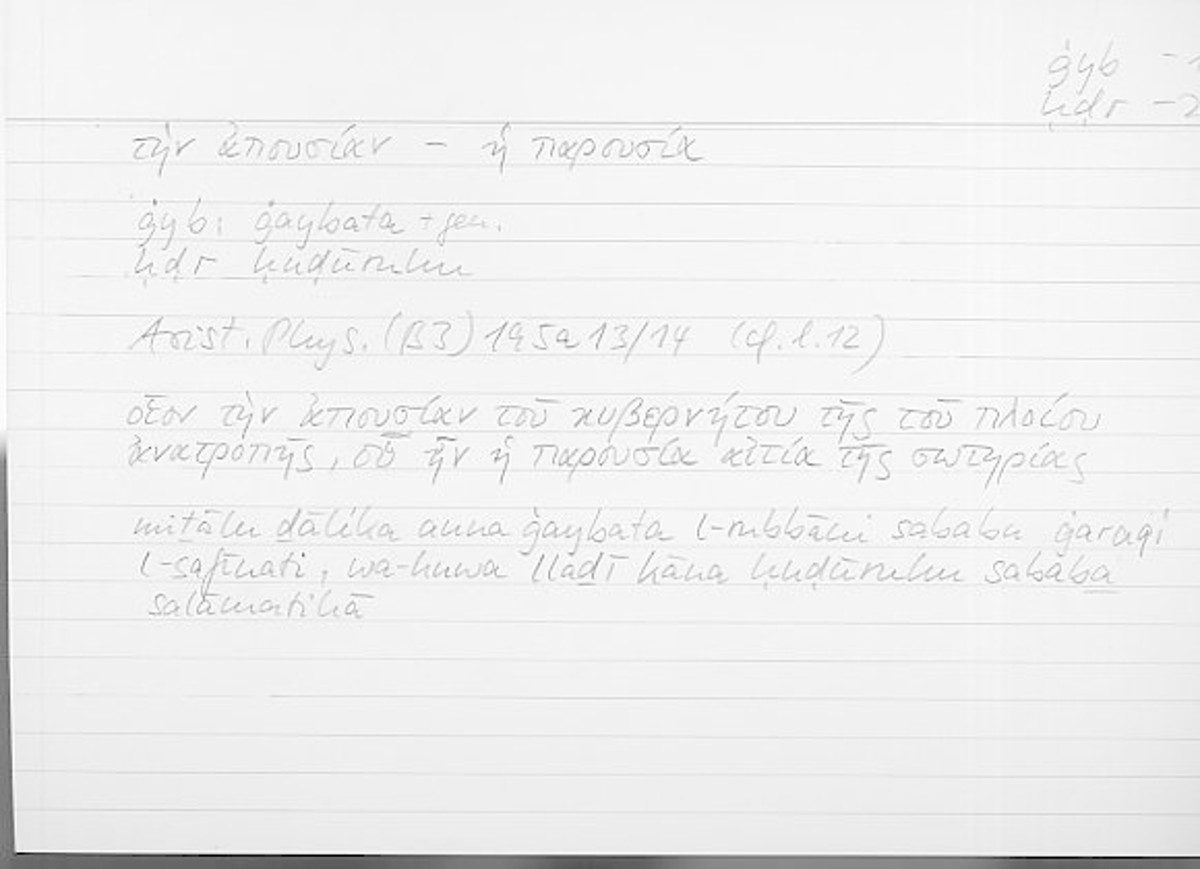 ġyb -1
ḥḍr -2
τὴν ἀπουσίαν – ἡ παρουσία
ġyb: ġaybata + gen.
ḥḍr ḥuḍūruhu
Arist. Phys. (B3) 195a13/14 (cf. l. 12)
οἷον τὴν ἀπουσίαν τοῦ κυβερνήτου τῆς τοῦ πλοίου
ἀνατροπῆς, οὗ ἦν ἡ παρουσία αἰτία τῆς σωτηρίας
miṯālu ḏālika anna ġaybata l-rubbāni sababu ġaraqi
l-safīnati, wa-huwa llaḏī kāna ḥuḍūruhu sababa
salāmatihā